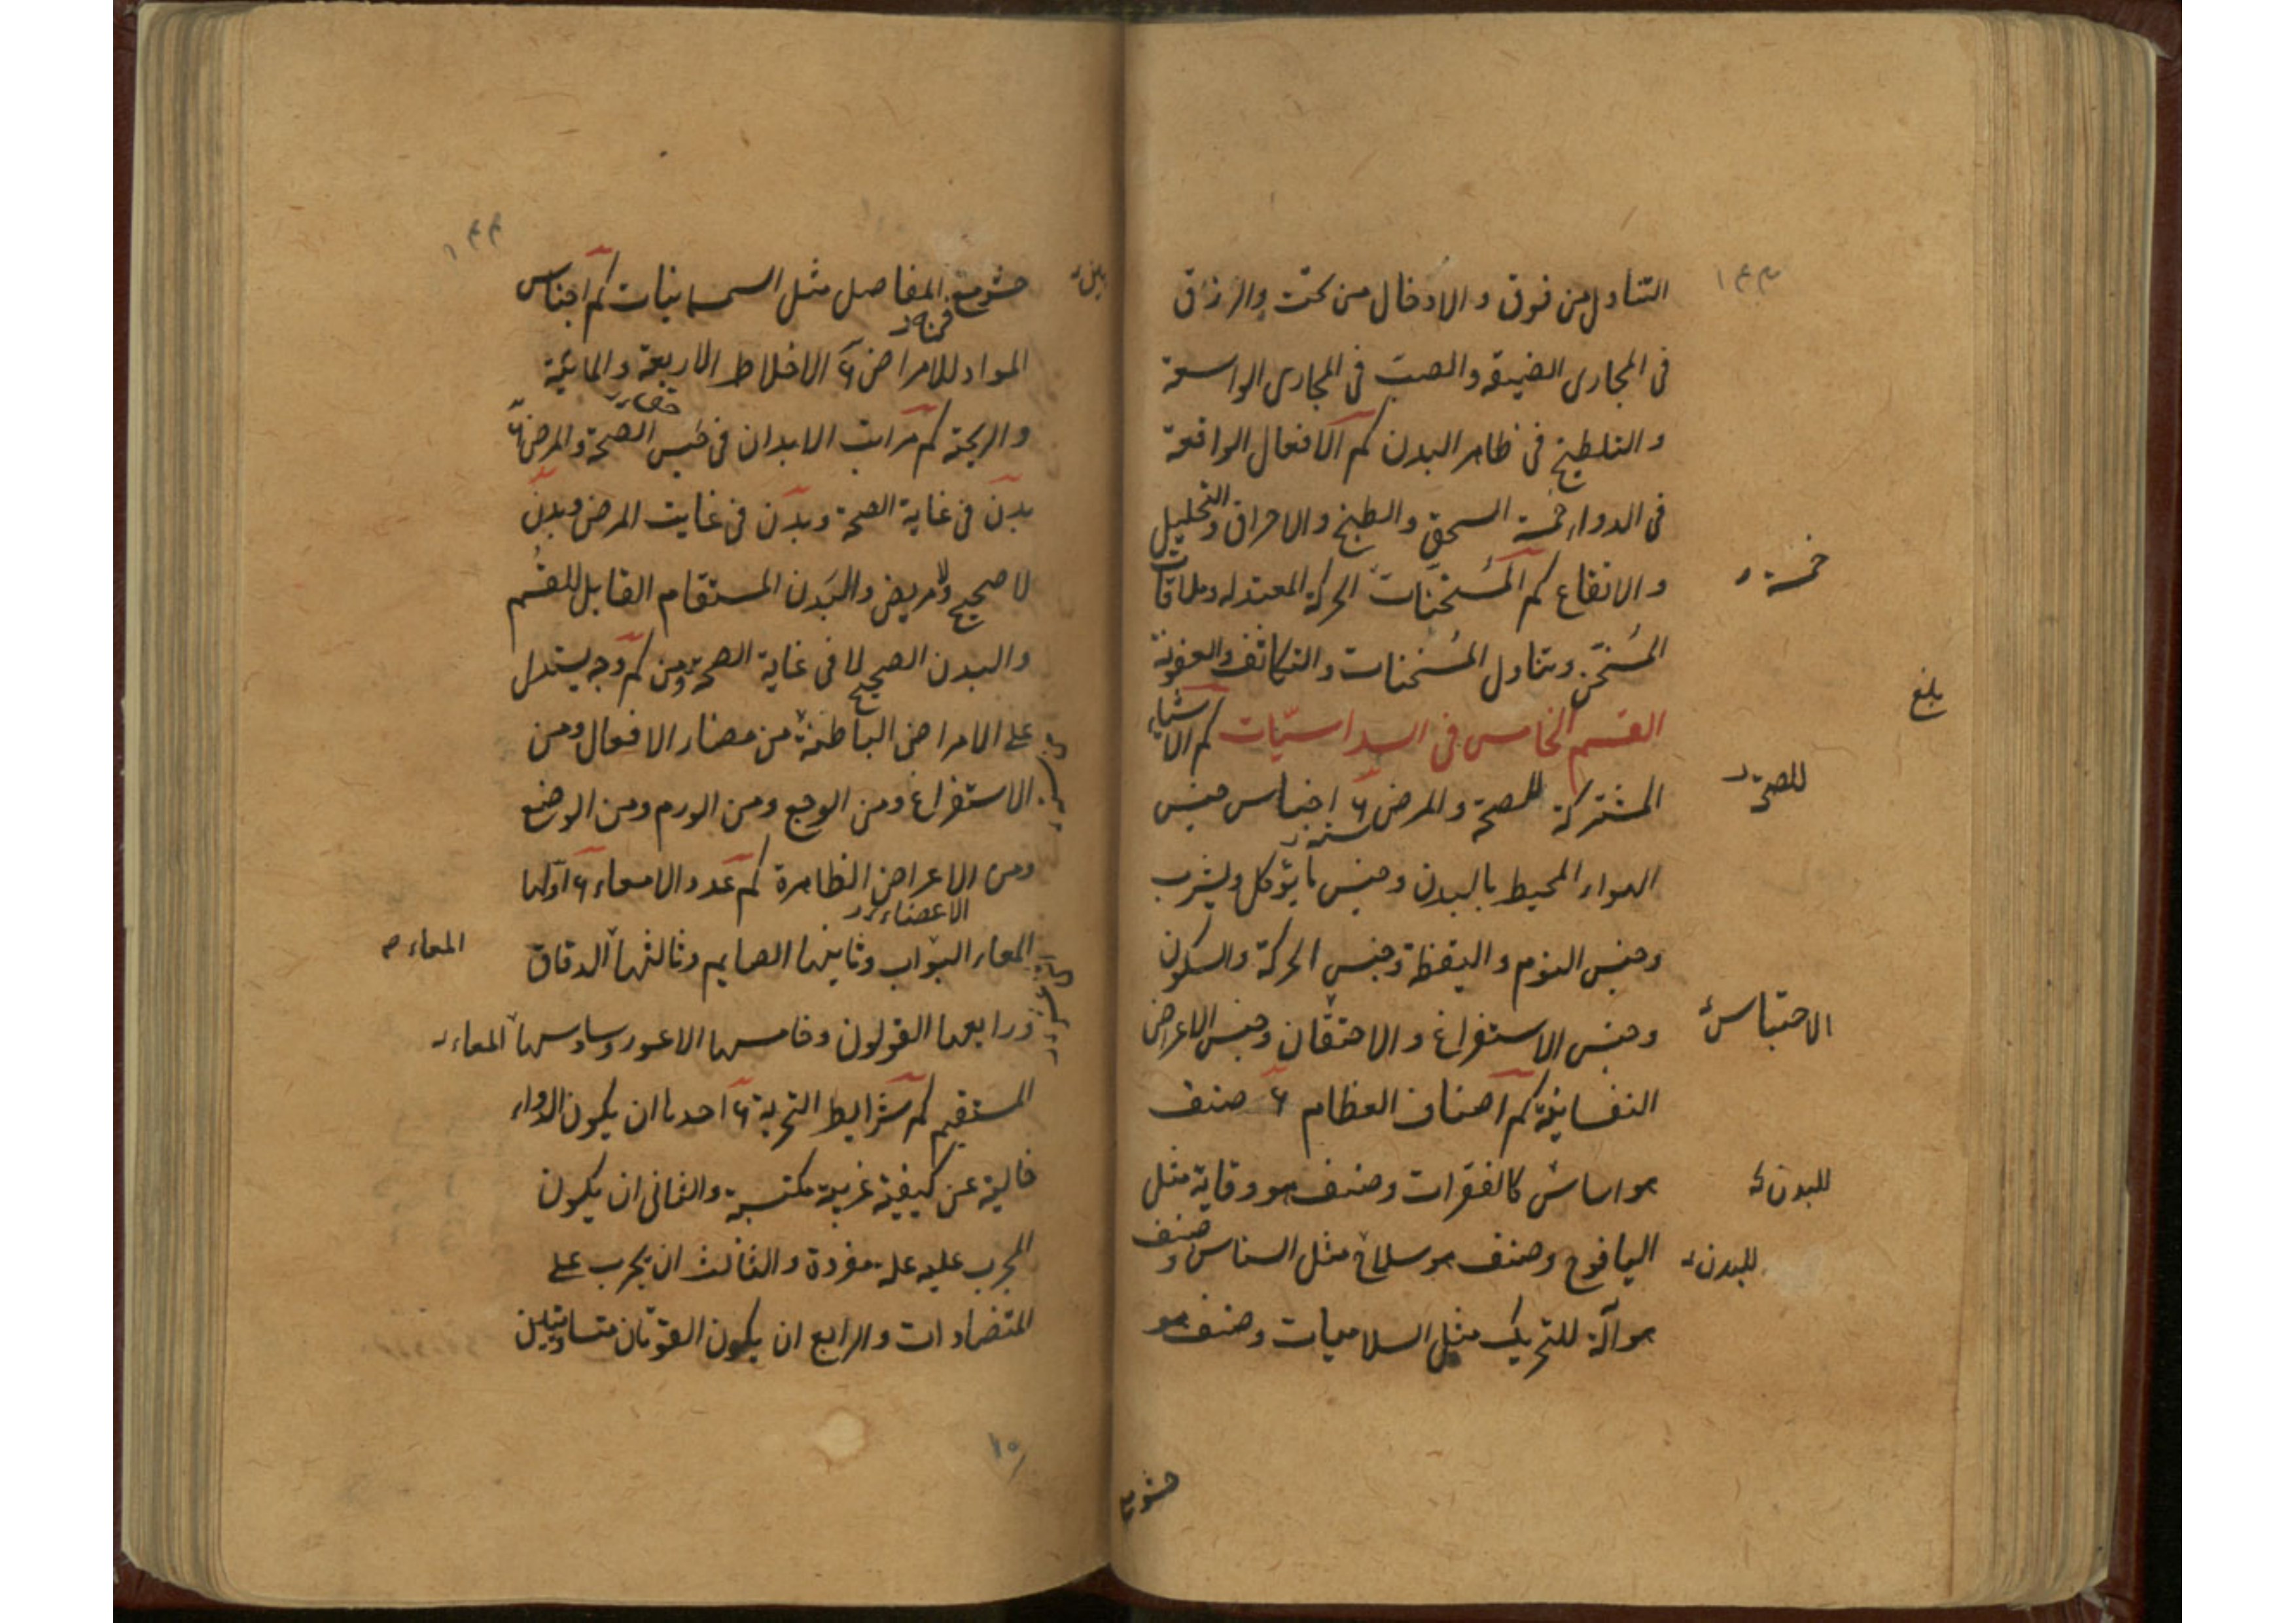 ١٤٣
التناول من فوق والادخال من تحت والزرق
فى المجارى الضيقة والصب فى المجارى الواسعة
والتلطيخ فى ظاهر البدن كم الافعال الواقعة
فى الدواء خمسة السحق والطبخ والاحراق والتحليل
خمسة
والانقاع كم المسخنات الحركة المعتدله وملاقات
المسخن وتناول المسخنات والتكاثف والعفونة
بلغ
القسم الخامس فى السداسيّات كم الاشياء
للصحة
المشتركة للصحة والمرض ٦ اجناس جنس
ستة
الهواء المحيط بالبدن وجنس ما يؤكل ويشرب
وجنس النوم واليقظة وجنس الحركة والسكون
وجنس الاستفراغ والاحتقان وجنس الاعراض
الاحتباس
النفسانية كم اصناف العظام ٦ صنف
هو اساس كالفقرات وصنف هو وقاية مثل
للبدن
اليافوخ وصنف هو سلاح مثل السناس وصنف
للبدن
هو آلة للتحريك مثل السلاميات وصنف هو
حشو بين
١٤٤
حشو بين المفاصل مثل السمسمانيات كم اجناس
بين
المواد للامراض ٦ الاخلاط الاربعة والمائية
والريحية كم مراتب الابدان فى جنس الصحة والمرض ٦
بدن فى غاية الصحة وبدن فى غايت المرض وبدن
لا صحيح ولا مريض والبدن المستقام القابل للصحة
والبدن الصحيح لا فى غاية الصحة ومن كم وجه يستدل
على الامراض الباطنة من مضار الافعال ومن
الاستفراغ ومن الوجع ومن الورم ومن الوضع
ومن الاعراض الظاهرة كم عدد الامعاء ٦ اولها
الاعضاء
المعاء البواب وثانيها الصايم وثالثها الدقاق
المعاء
ورابعها القولون وخامسها الاعور وسادسها المعاء
المستقيم كم شرايط التجربة ٦ احدها ان يكون الدواء
خالية عن كيفية غريبة مكتسبة والثانى ان يكون
المجرب عليه علة مفردة والثالث ان يجرب على
المتضادات والرابع ان يكون القوتان متساويتين